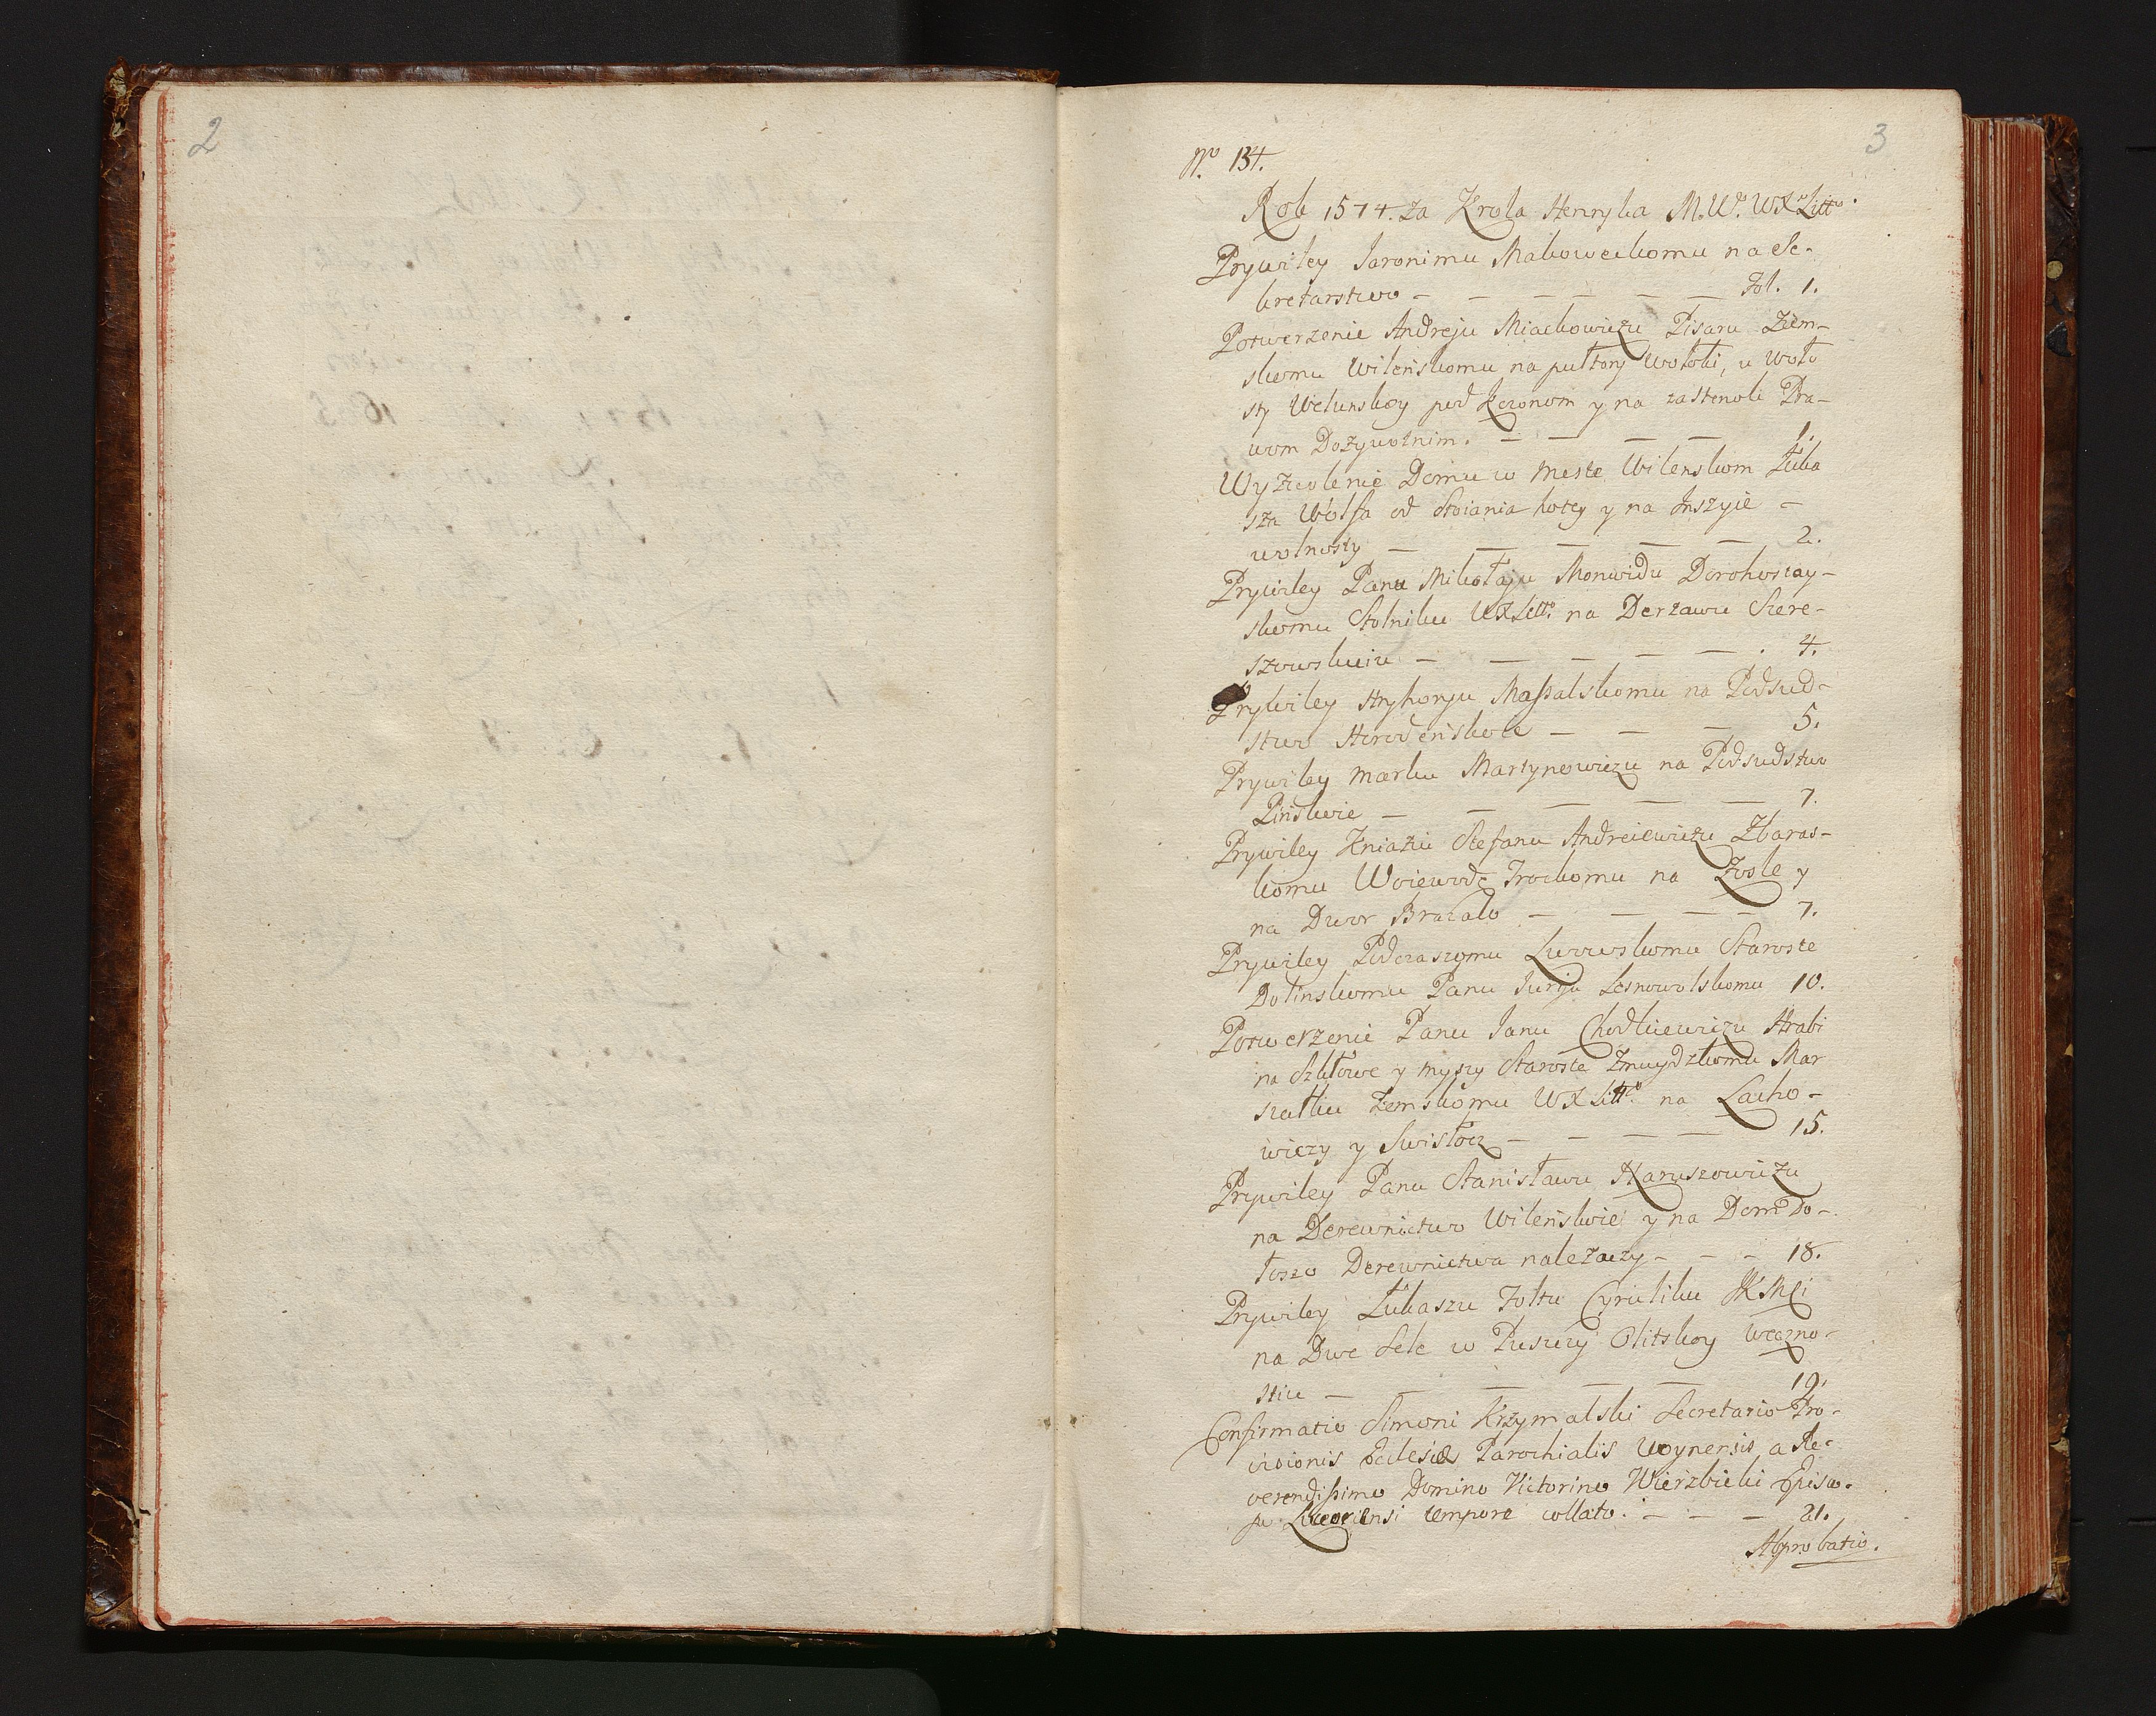 2
3
No. 134.
Rok 1574. za Krola Henryka M. Wo. WXLitto.
Prywiley Jaronimu Makoweckomu na Se-
kretarstwo — — — — — Fol. 1.
Potwerzenie Andreju Miackowiczu Pisaru Zem-
skomu Wilenskomu na pułtory wołoki, u woło
sty Welunskoy pod Kozonom y na zastenok Pra-
wom Dożywotnim. — — — — 1.
Wyzwolenie Domu w meste Wilenskom Łuka
sza Wolfa od Stoiania hotey y na Inszyie —
wolnosty — — — — — 2.
Prywiley Panu Mikołaju Monwidu Dorohostay-
skomu Stolniku WXLitto. na Derzawu Szere-
szowskuiu — — — — — . 4.
Prywiley Hryhoryu Massalskomu na Podsud-
stwo Horodeńskoie — — — 5.
Prywiley Marku Martynowiczu na Podsudstwo
Pińskoie — — — — — 7.
Prywiley Kniaziu Stefanu Andreiewiczu Zbaraz-
komu Woiewode Trockomu na Żosle y
na Dwor Brazało — — — — 7.
Prywiley Podczaszomu Lwowskomu Staroste
Dolinskomu Panu Juriju Lesnowolskomu 10.
Potwerzenie Panu Janu Chodkiewiczu Hrabi
na Szkłowe y myszy Staroste Zmuydzkomu Mar
szałku Zemskomu WXLitto. na Lacho-
wiczy y Swisłocz — — — — 15.
Prywiley Panu Stanisławu Naruszowiczu
na Derewnictwo Wileńskoie y na Dom Do-
toszo Derewnictwa należaczy — — — 18.
Prywiley Łukaszu Foltu Cyruliku JKMci
na Dwe Sele w Puszczy Olitskoy weczno-
stiu — — — — — 19.
Confirmatio Simoni Krzymalski Secretario Pro-
visionis Eclesiæ Parochialis Woynensis a Re-
verendissimo Domino Victorino Wierzbicki Episco-
po Luceoriensi tempore collato. — — — 21.
Approbatio.